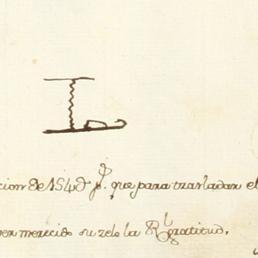 cion de 1540 ps. que para trasladar el
ver merecido su zelo la Rl gratitud.